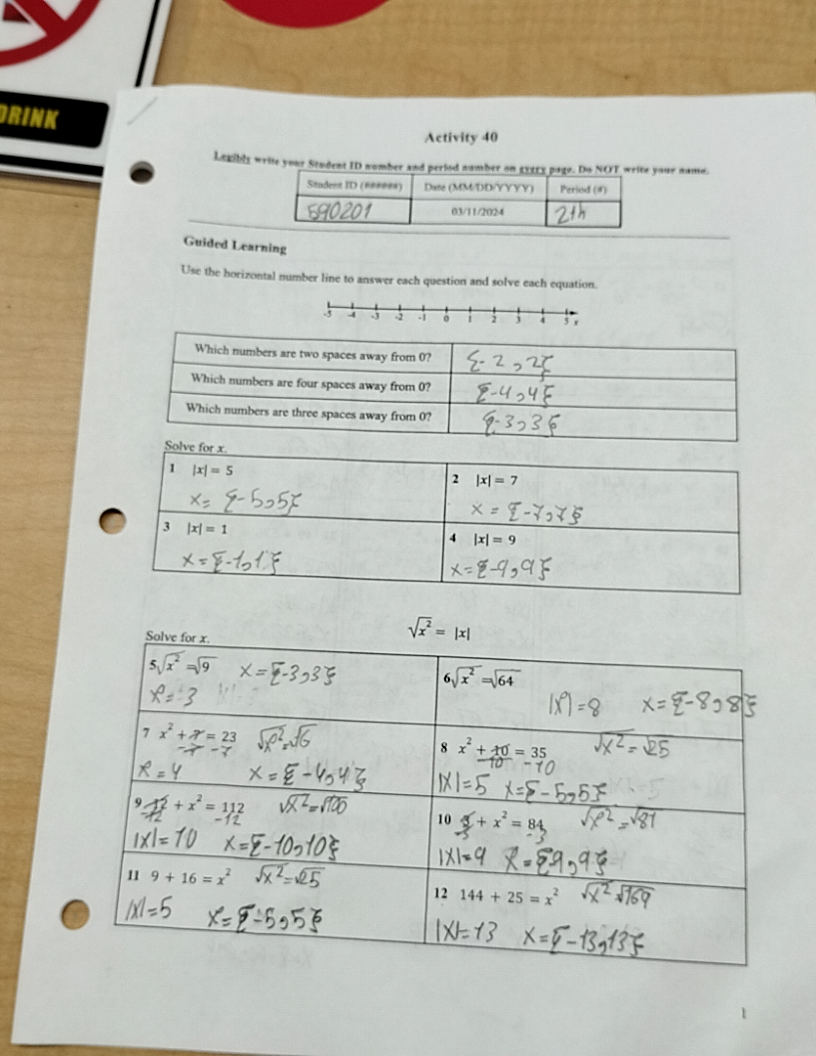 DRINK
Activity 40
Legibly write your Student ID number and period number on every page. Do NOT write your name.
Student ID (######) Date (MM/DD/YYYY) Period (#)
590201 03/11/2024 2th
Guided Learning
Use the horizontal number line to answer each question and solve each equation.
-5 -4 -3 -2 -1 0 1 2 3 4 5 x
Which numbers are two spaces away from 0? {-2,2}
Which numbers are four spaces away from 0? {-4,4}
Which numbers are three spaces away from 0? {-3,3}
Solve for x.
1 |x| = 5
x= {-5,5}
2 |x| = 7
x = {-7,7}
3 |x| = 1
x={-1,1}
4 |x| = 9
x={-9,9}
√x² = |x|
Solve for x.
5 √x² = √9 x={-3,3}
x=3
6 √x² = √64
|x|=8 x={-8,8}
7 x² + 7 = 23 √x²=√16
-7 -7
x=4 x={-4,4}
8 x² + 10 = 35 √x²=√25
-10 -10
|x|=5 x={-5,5}
9 12 + x² = 112 √x²=√100
-12 -12
|x|=10 x={-10,10}
10 3 + x² = 84 √x²=√81
-3 -3
|x|=9 x={9,9}
11 9 + 16 = x² √x²=√25
|x|=5 x={-5,5}
12 144 + 25 = x² √x² √169
|x|=13 x={-13,13}
1